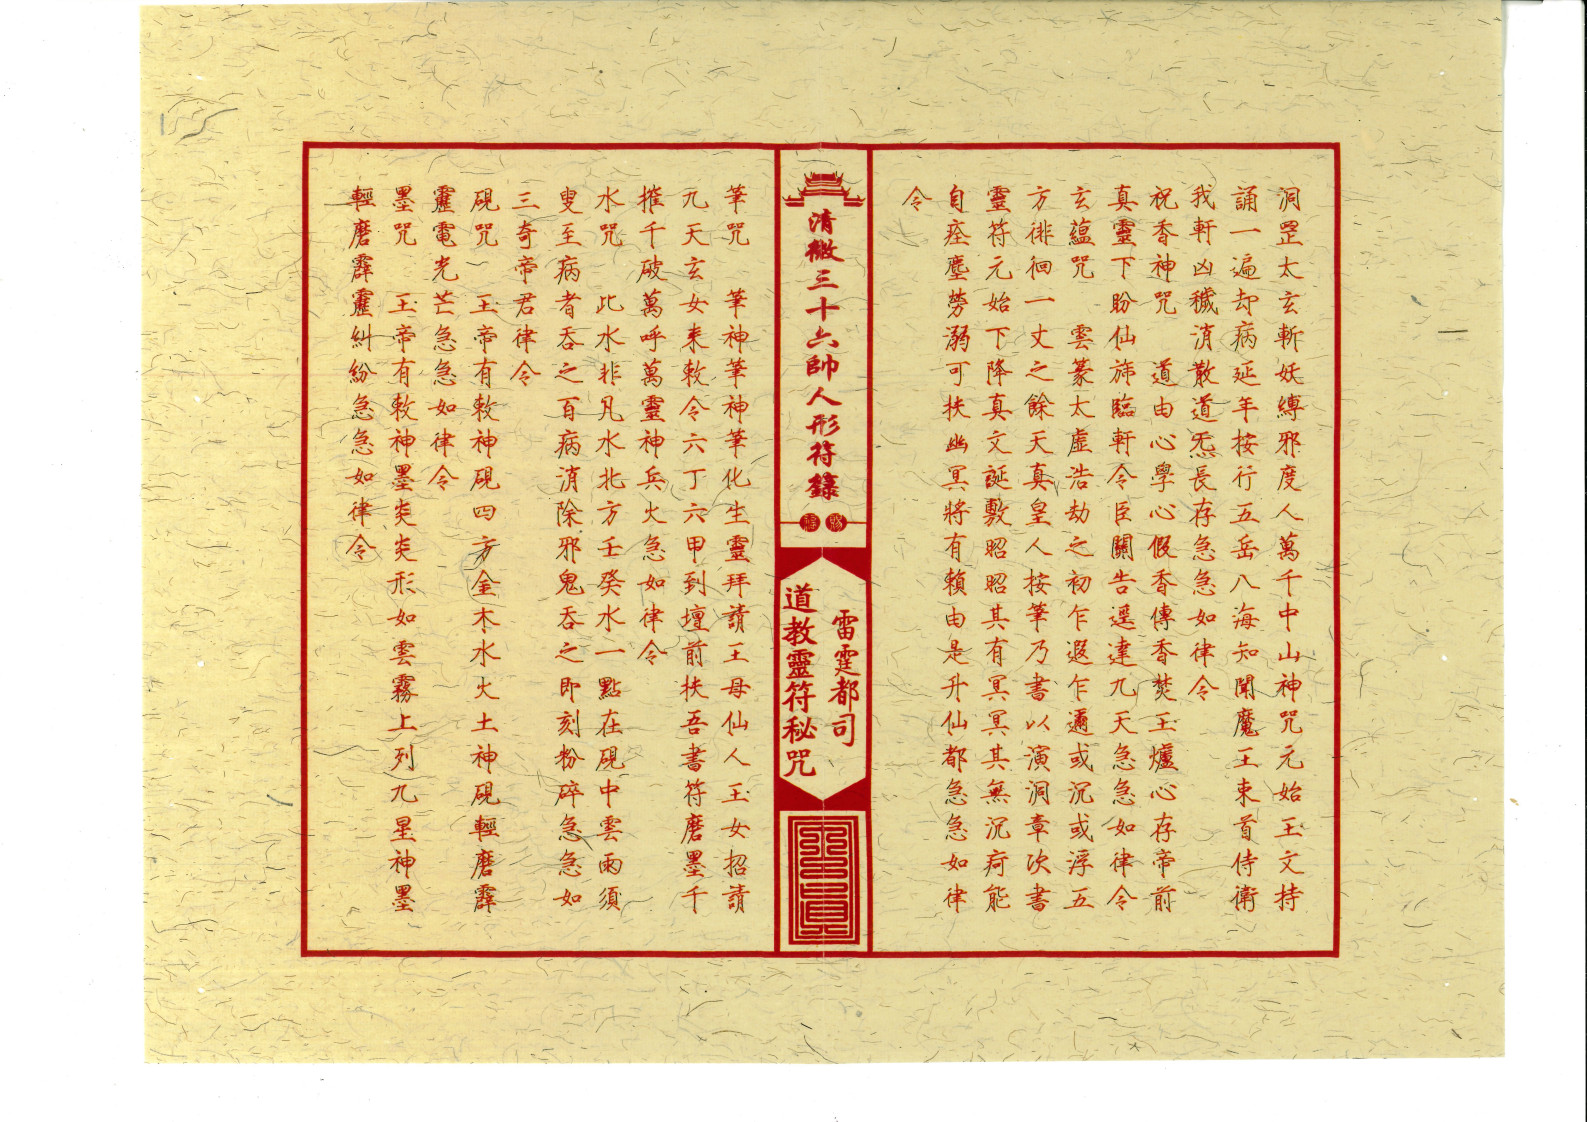 洞罡太玄斬妖縛邪度人萬千中山神咒元始玉文持
誦一遍却病延年按行五岳八海知聞魔王束首侍衛
我軒凶穢消散道炁長存急急如律令
祝香神咒 道由心學心假香傳香焚玉爐心存帝前
真靈下盼仙旆臨軒令臣關告逕達九天急急如律令
玄蘊咒 雲篆太虛浩劫之初乍遐乍邇或沉或浮五
方徘徊一丈之餘天真皇人按筆乃書以演洞章次書
靈符元始下降真文誕敷昭昭其有冥冥其無沉疴能
自痊塵勞溺可扶幽冥將有賴由是升仙都急急如律
令
清微三十六帥人形符籙
雷霆都司
道教靈符秘咒
筆咒 筆神筆神筆化生靈拜請王母仙人玉女招請
九天玄女來敕令六丁六甲到壇前扶吾書符磨墨千
摧千破萬呼萬靈神兵火急如律令
水咒 此水非凡水北方壬癸水一點在硯中雲雨須
叟至病者吞之百病消除邪鬼吞之即刻粉碎急急如
三奇帝君律令
硯咒 玉帝有敕神硯四方金木水火土神硯輕磨霹
靂電光芒急急如律令
墨咒 玉帝有敕神墨炎炎形如雲霧上列九星神墨
輕磨霹靂糾紛急急如律令